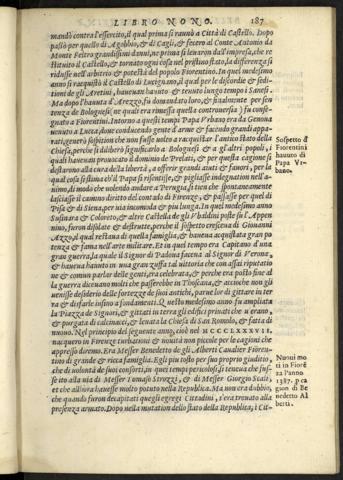 LIBRO NONO.
187
mandò contra l'essercito, il qual prima si raunò a Città di Castello. Dopo
passò per quello di Agobbio, & di Cagli, & fecero al Conte Antonio da
Monte Feltro grandissimi danni, ne prima si levaron dall'impresa, che re
stituito il Castello, & tornato ogni cosa nel pristino stato, la differenza si
ridusse nell'arbitrio & potestà del popolo Fiorentino. In quel medesimo
anno si racquistò il Castello di Lucignano, il qual per le discordie & sedi
tioni de gli Aretini, havevano havuto & tenuto lungo tempo i Sanesi.
Ma dopo l'havuta d'Arezzo, fu domandato loro, & finalmente per sen
tenza de Bolognesi, ne quali era rimessa quella controversia, fu conse-
gnato a Fiorentini. Intorno a questi tempi Papa Urbano era da Genova
venuto a Lucca, dove conducendo gente d'arme & facendo grandi appa-
rati, generò suspition che non fusse volto a racquistar l'antico stato della
Chiesa, perche si diliberò significarlo a Bolognesi & a gl'altri popoli, i
quali havevan provocato il dominio de Prelati, & per questa cagione si
destarono alla cura della libertà, a offerirli grandi aiuti & favori, per la
qual cosa
nio, di modo che volendo andare a Perugia, si tien che spontaneamente
lasciasse il camino diritto del contado di Firenze, & passasse per quel di
Pisa & di Siena, per via incomoda & piu lunga. In quel medesimo anno
Susinara & Coloreto, & altre Castella de gli Ubaldini poste su l'Appen
nino, furon disolate & destrutte, perche il sospetto cresceva di Giovanni
Azzo, il qual restava di questa famiglia, & haveva acquistata gran po
tenza & fama nell'arte militare. Et in quel tempo era Capitano d'una
gran guerra, la quale il Signor di Padova faceva al Signor di Verona,
& haveva havuto in una gran zuffa tal vittoria che con assai riputatio
ne & comun parlar delle genti, era celebrata, & perche era posto fine a
la guerra dicevano molti che passerebbe in Thoscana, & accioche non gli
venisse desiderio delle fortezze de suoi antichi, parve lor di gittare in ter
ra & disfarle insino a fondamenti. Questo medesimo anno fu ampliata
la Piazza de Signori, & gittati in terra gli edifici privati che v'erano,
& purgata di calcinacci, & levata la Chiesa di San Romolo, & fatta di
nuovo. Nel principio del seguente anno, cioè nel MCCCLXXXVII.
nacquero in Firenze turbationi & novità non piccole per le cagioni che
appresso diremo. Era Messer Benedetto de gli Alberti Cavalier Fioren-
tino di grande & ricca famiglia. Egli piu tosto per suo proprio giuditio,
che di volontà de suoi consorti, in quei tempi pericolosi, si teneva che fus-
se ito alla via di Messer Tomaso Strozzi, & di Messer Giorgio Scali,
et che allhora havesse molto potuto nella Republica. Ma non era dubbio,
che quando furon decapitati quegli egregi Cittadini, s'era trovato alla
presenza armato. Dopo nella mutation dello stato della Republica, i Cit-
Sospetto d
Fiorentini
havuto di
Papa Ur-
bano.
Nuovi mo
ti in Fiorẽ
za l'anno
1387. p ca
gion di Be
nedetto Al
berti.